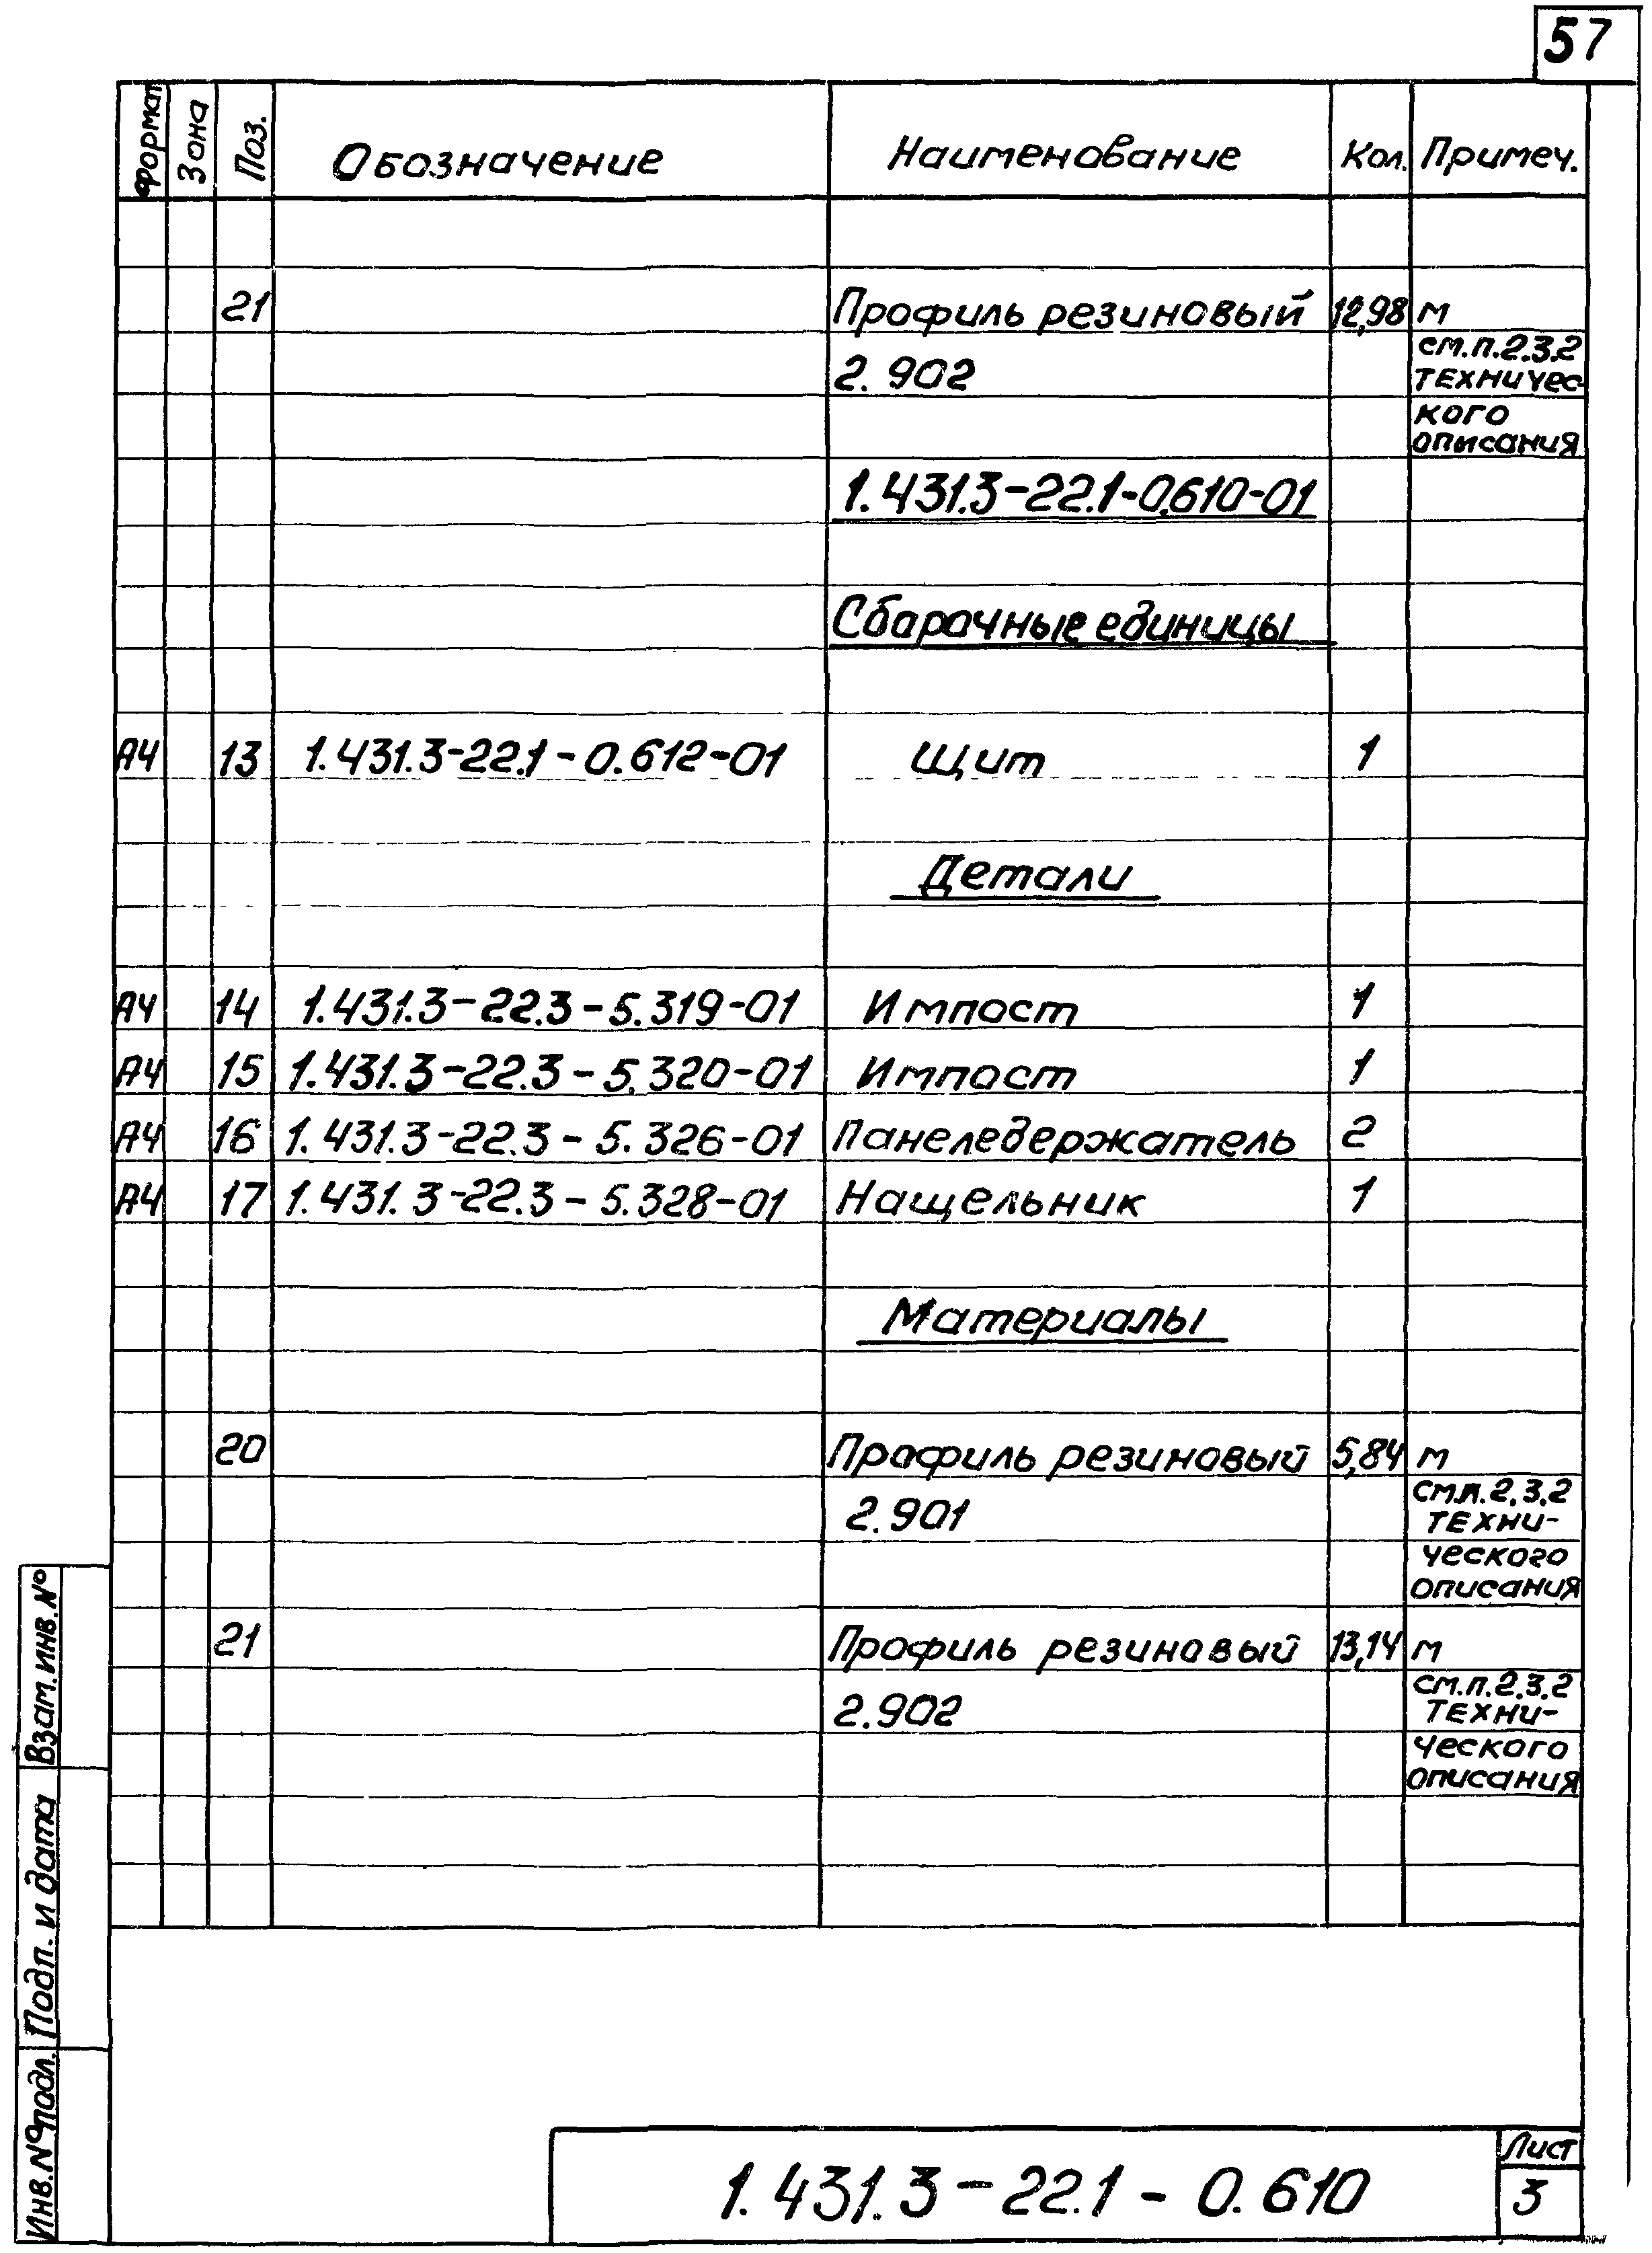 57
Формат Зона Поз. Обозначение Наименование Кол. Примеч.
21 Профиль резиновый 12,98 м
2.902 см.п.2.3.2
техничес-
кого
описания
1.431.3-22.1-0.610-01
Сборочные единицы
А4 13 1.431.3-22.1-0.612-01 Щит 1
Детали
А4 14 1.431.3-22.3-5.319-01 Импост 1
А4 15 1.431.3-22.3-5.320-01 Импост 1
А4 16 1.431.3-22.3-5.326-01 Панеледержатель 2
А4 17 1.431.3-22.3-5.328-01 Нащельник 1
Материалы
20 Профиль резиновый 5,84 м
2.901 см.п.2.3.2
техни-
ческого
описания
21 Профиль резиновый 13,14 м
2.902 см.п.2.3.2
техни-
ческого
описания
Взам.инв.№
Подп. и дата
Инв.№подл.
1.431.3-22.1-0.610
Лист
3